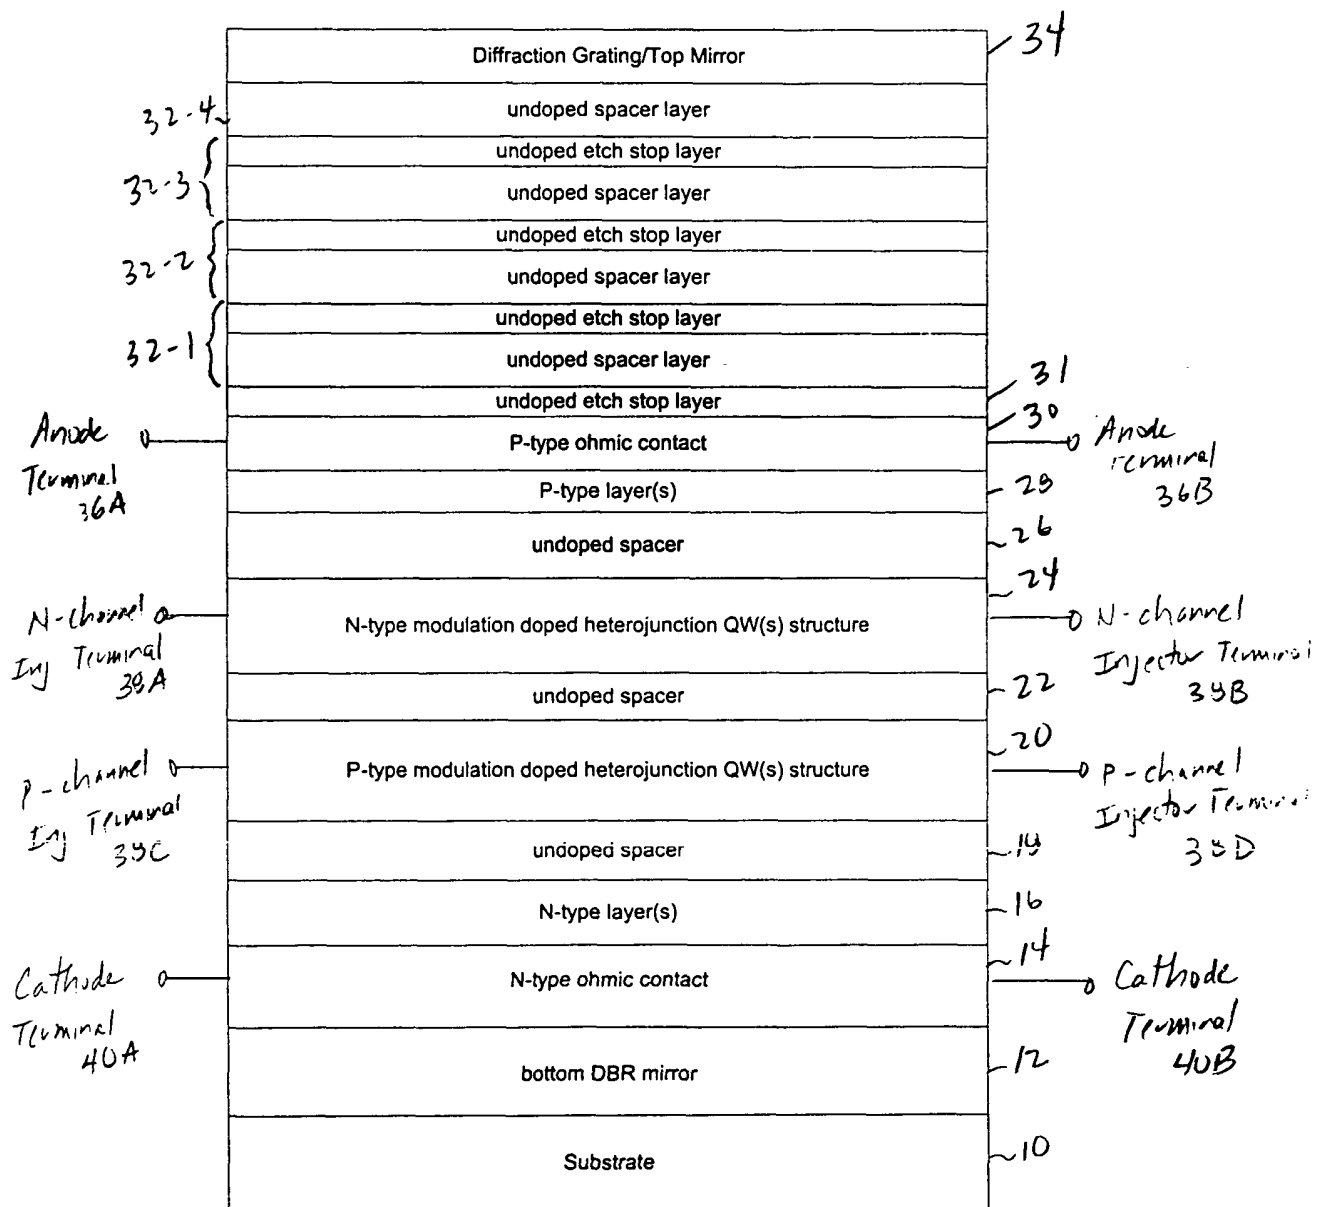 34
Diffraction Grating/Top Mirror
32-4
undoped spacer layer
undoped etch stop layer
32-3
undoped spacer layer
undoped etch stop layer
32-2
undoped spacer layer
undoped etch stop layer
32-1
undoped spacer layer
31
undoped etch stop layer
30
Anode
Terminal
36A
P-type ohmic contact
Anode
Terminal
36B
P-type layer(s)
28
undoped spacer
26
24
N-channel
Inj Terminal
38A
N-type modulation doped heterojunction QW(s) structure
N-channel
Injector Terminal
38B
undoped spacer
22
20
P-channel
Inj Terminal
38C
P-type modulation doped heterojunction QW(s) structure
P-channel
Injector Terminal
38D
undoped spacer
18
N-type layer(s)
16
14
Cathode
Terminal
40A
N-type ohmic contact
Cathode
Terminal
40B
bottom DBR mirror
12
Substrate
10